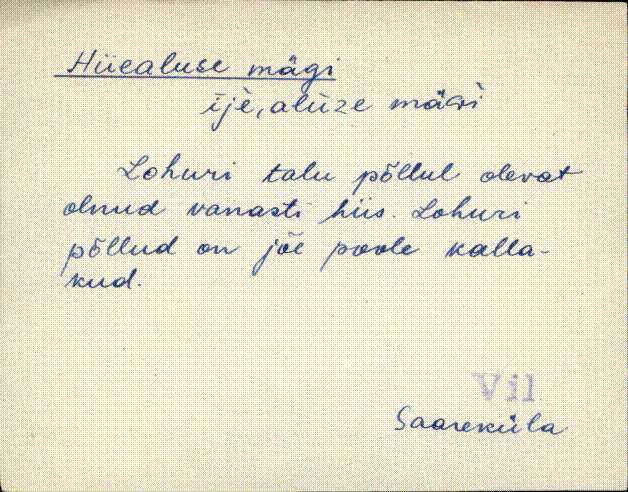 Hiiealuse mägi
ije, aluze mäǵi
Lohuri talu põllul olevat
olnud vanasti hiis. Lohuri
põllud on jõe poole kalla-
kud.
Vil
Saareküla